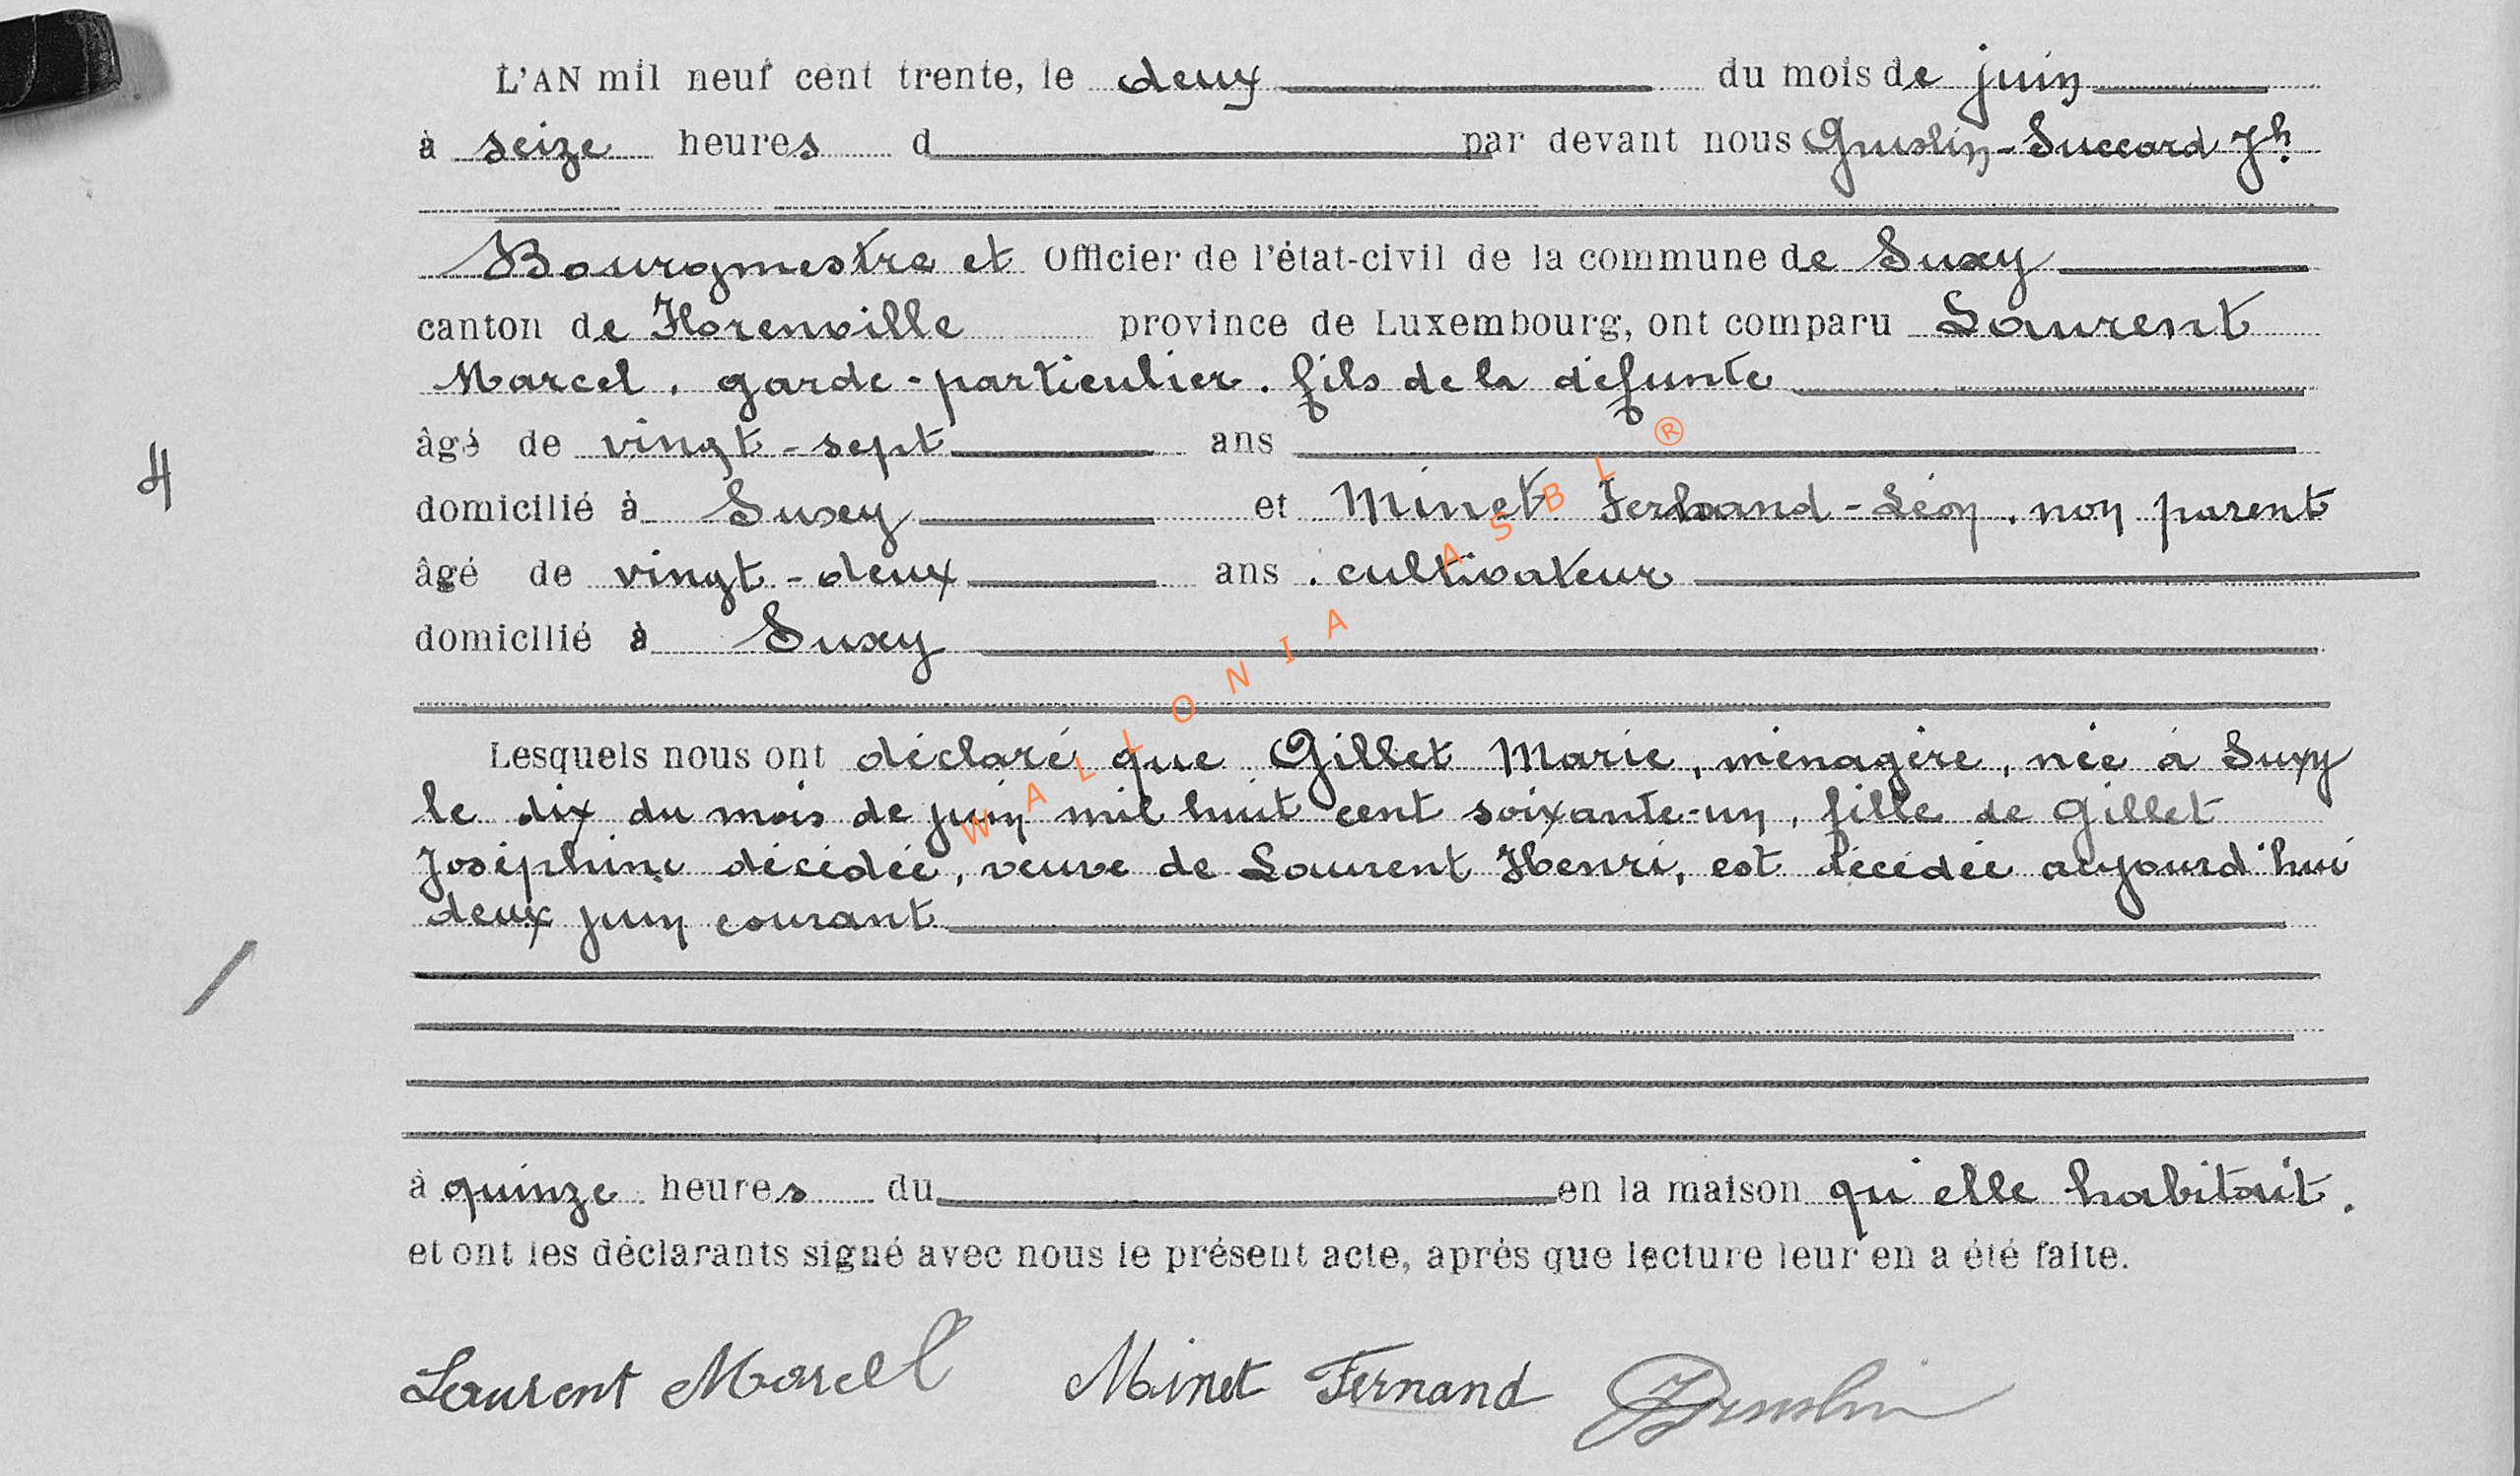 L'AN mil neuf cent trente, le deux du mois de juin
à seize heures d par devant nous Gruslin-Succard Jh.
Bourgmestre et Officier de l'état-civil de la commune de Suxy
canton de Florenville province de Luxembourg, ont comparu Laurent
Marcel, garde-particulier, fils de la défunte
âgé de vingt-sept ans
domicilié à Suxy et Minet Fernand-Léon, non parent
âgé de vingt-deux ans, cultivateur
domicilié à Suxy
4
Lesquels nous ont déclaré que Gillet Marie, ménagère, née à Suxy
le dix du mois de juin mil huit cent soixante-un, fille de Gillet
Joséphine décédée, veuve de Laurent Henri, est décédée aujourd'hui
deux juin courant
à quinze heures du en la maison qu'elle habitait.
et ont les déclarants signé avec nous le présent acte, après que lecture leur en a été faite.
Laurent Marcel Minet Fernand JGruslin
WALLONIA ASBL ®